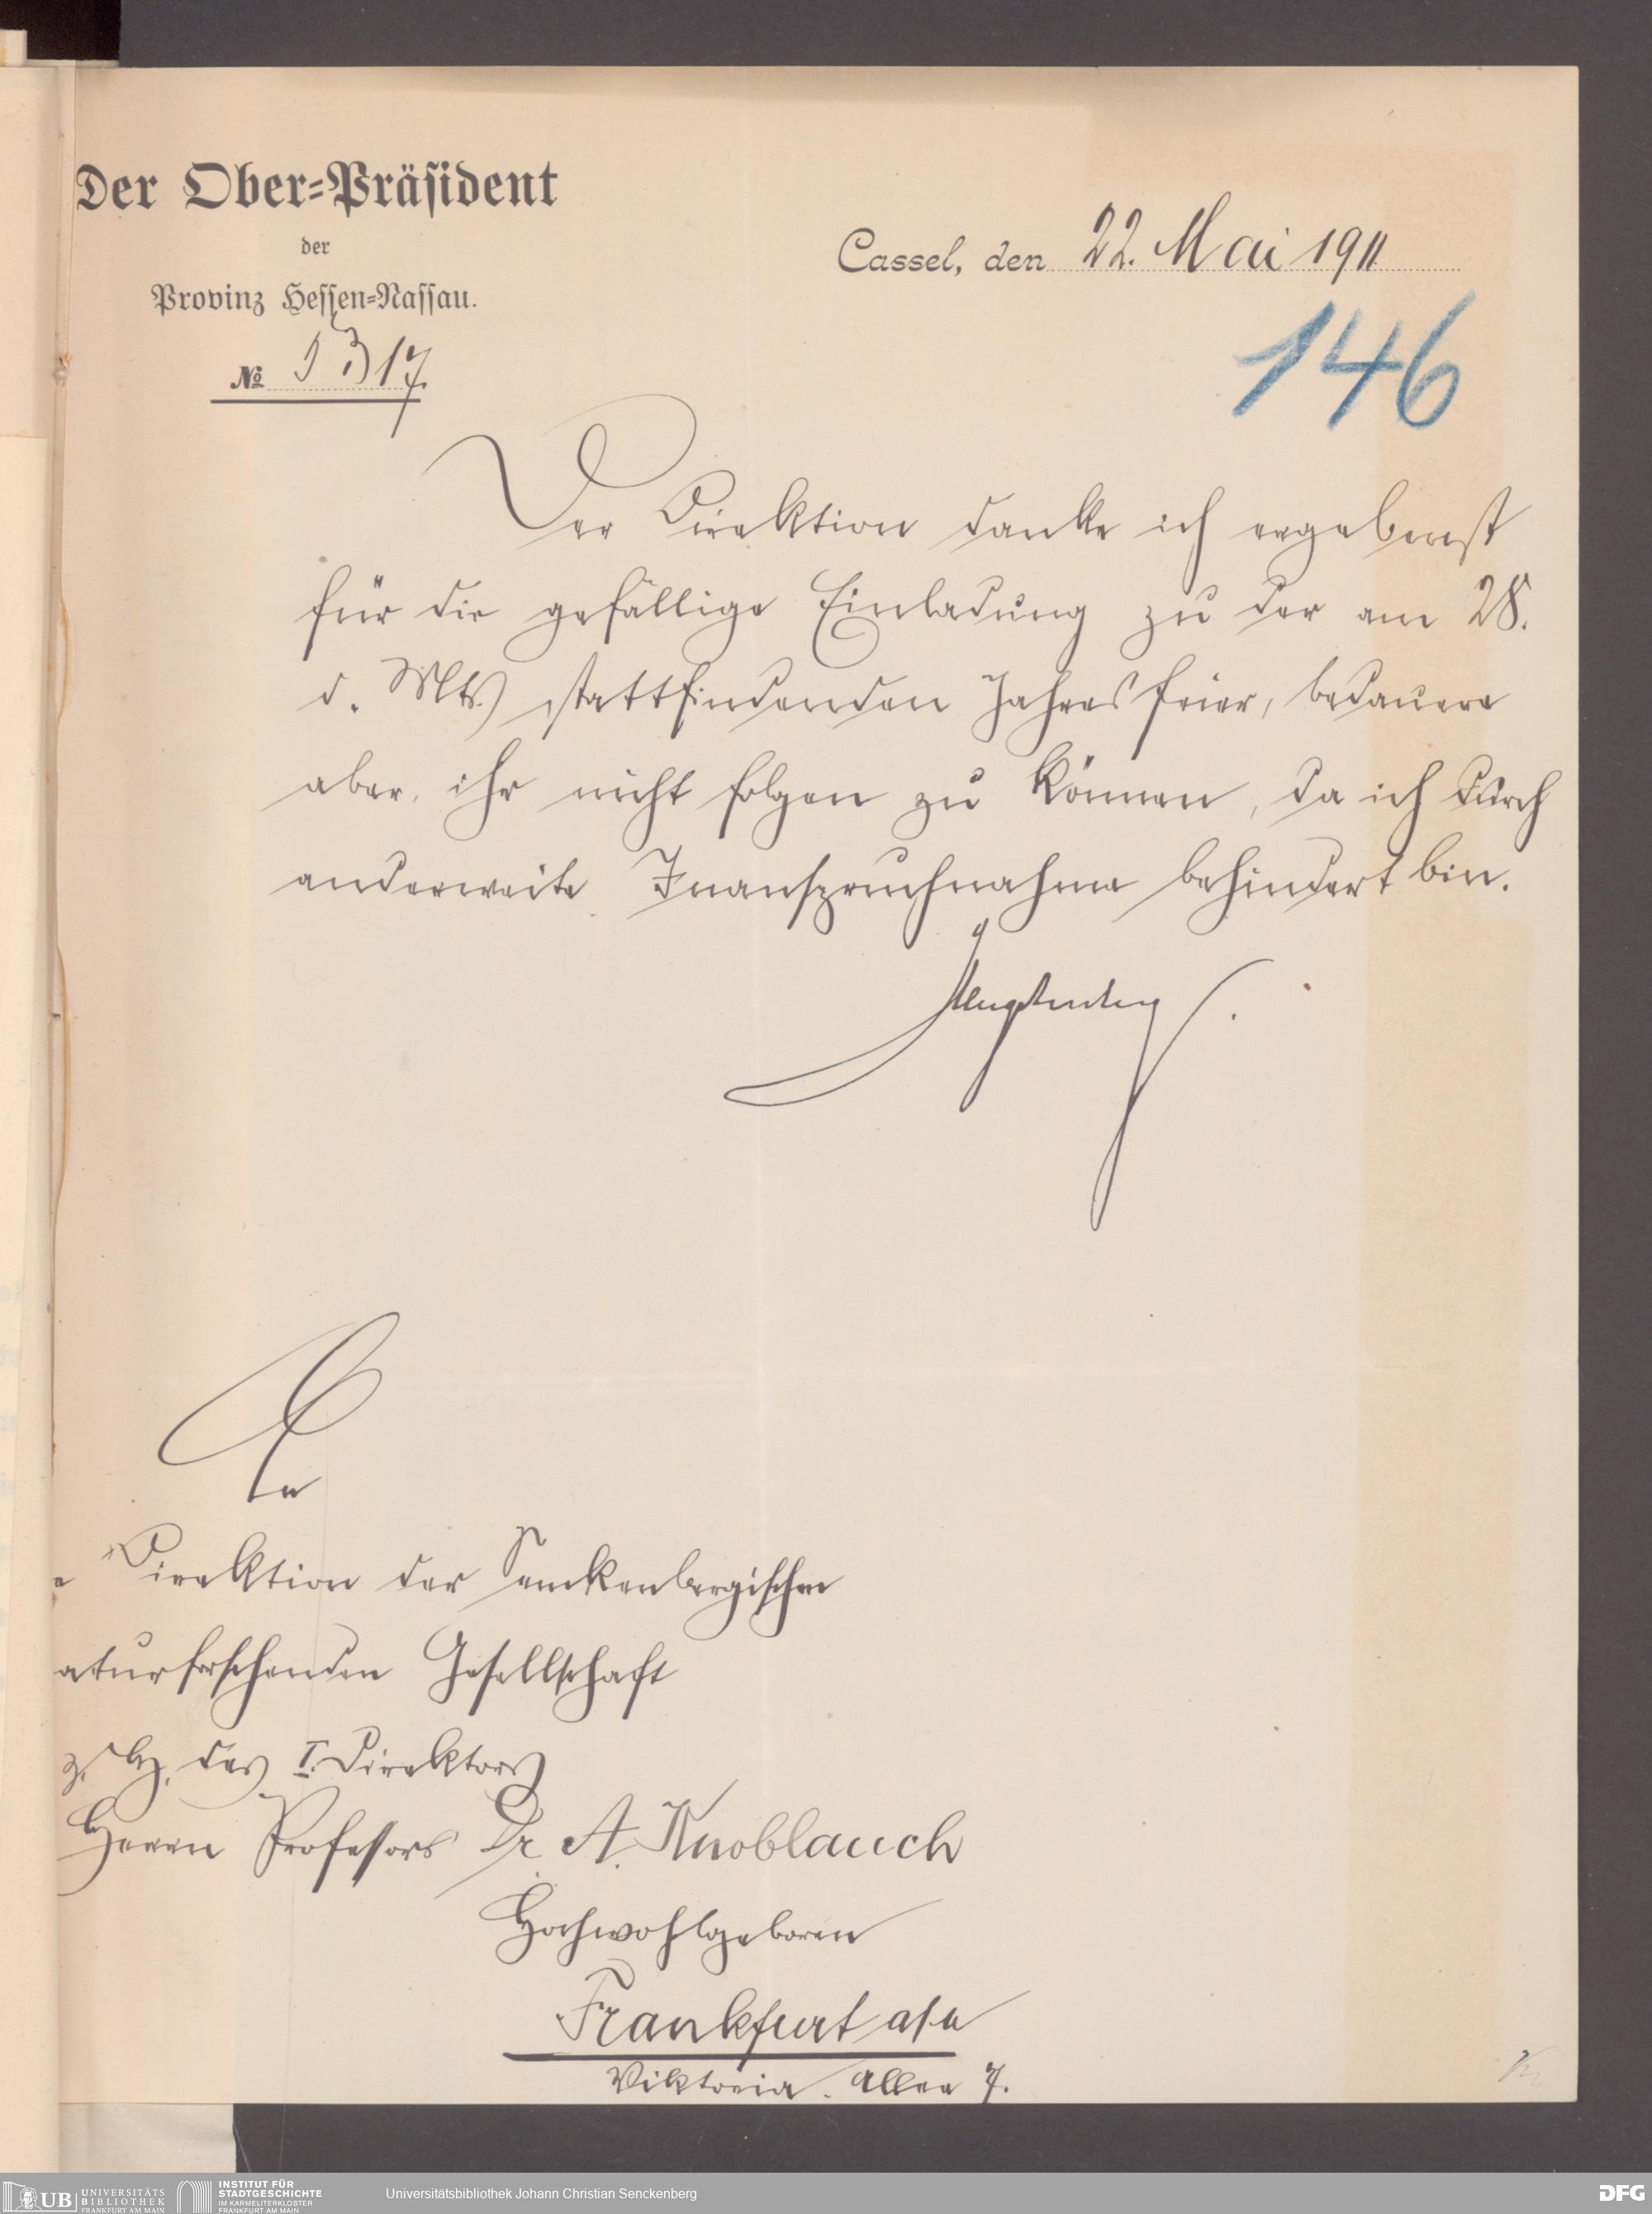 Der Ober=Präsident
der
Provinz Hessen=Nassau.
Cassel, den 22. Mai 1911
№
146
Der Direktion danke ich ergebenst
für die gefällige Einladung zu der am 28.
d. Mts. stattfindenden Jahresfeier, bedauere
aber, ihr nicht folgen zu können, da ich durch
anderweite Inanspruchnahme behindert bin.
Hengstenberg.
An
e Direktion der Senckenbergischen
aturforschenden Gesellschaft
z. H. des I. Direktors
Herrn Professors Dr A. Knoblauch
Hochwohlgeboren
Frankfurt a/M
Viktoria-Allee 7.
UB
UNIVERSITÄTS
BIBLIOTHEK
FRANKFURT AM MAIN
INSTITUT FÜR
STADTGESCHICHTE
IM KARMELITERKLOSTER
FRANKFURT AM MAIN
Universitätsbibliothek Johann Christian Senckenberg
DFG